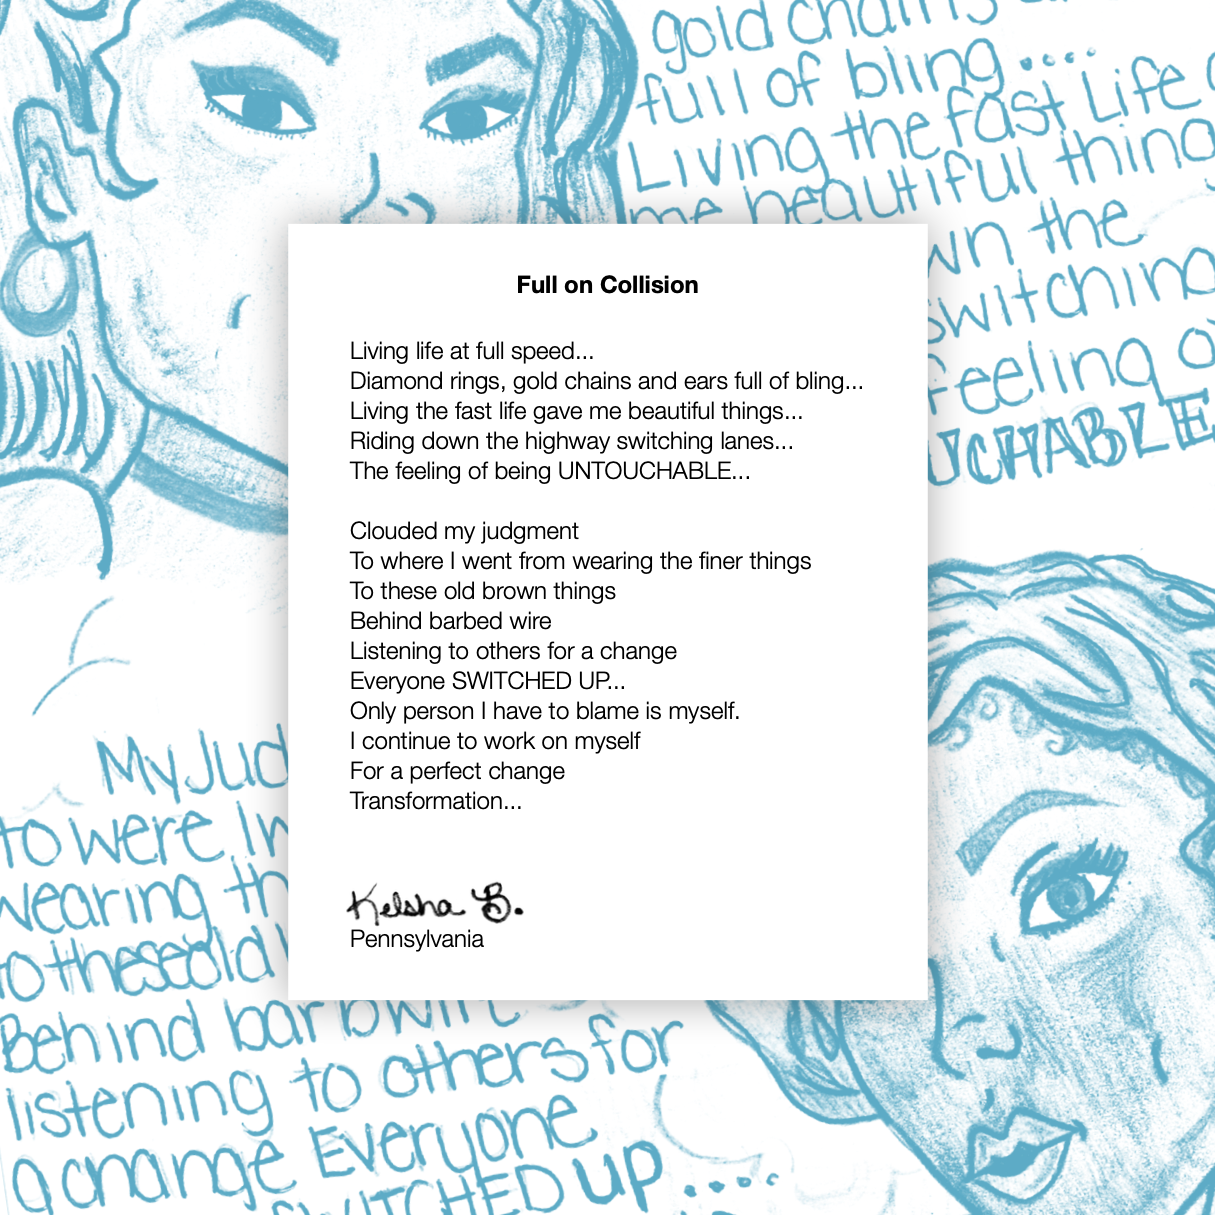 gold chains
full of bling....
Living the fast Life
me beautiful thing
wn the
switching
feeling o
UCHABLE
Full on Collision
Living life at full speed...
Diamond rings, gold chains and ears full of bling...
Living the fast life gave me beautiful things...
Riding down the highway switching lanes...
The feeling of being UNTOUCHABLE...
Clouded my judgment
To where I went from wearing the finer things
To these old brown things
Behind barbed wire
Listening to others for a change
Everyone SWITCHED UP...
Only person I have to blame is myself.
I continue to work on myself
For a perfect change
Transformation...
Kelsha B.
Pennsylvania
My Jud
to were I w
wearing th
to these old
Behind barb wir
listening to others for
a change Everyone
SWITCHED up....